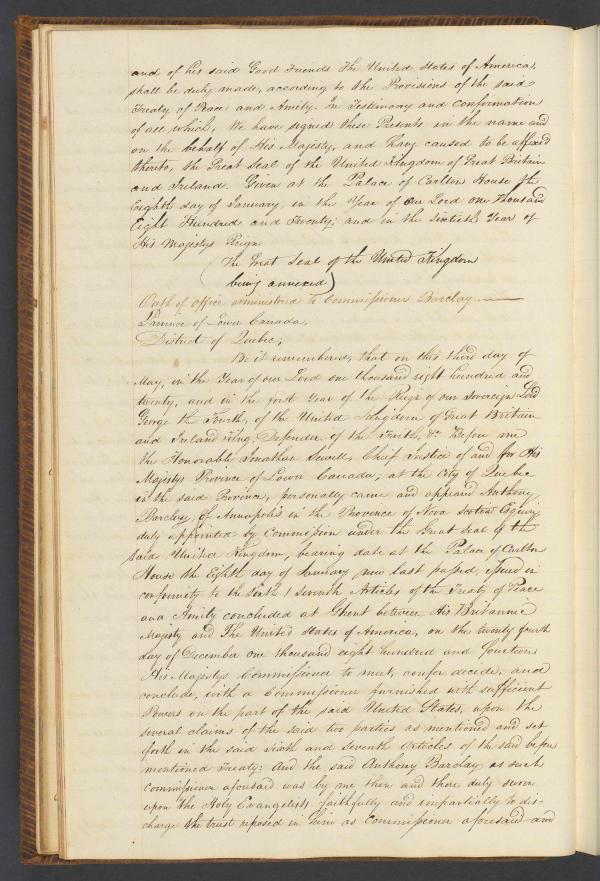 and of his said Good Friends The United States of America,
shall be duly made, according to the Provisions of the said
Treaty of Peace and Amity. In Testimony and confirmation
of all which, We have signed these Presents in the name and
on the behalf of His Majesty, and have caused to be affixed
thereto, the Great Seal of the United Kingdom of Great Britain
and Ireland. Given at the Palace of Carlton House the
Eighth day of January in the Year of our Lord one Thousand
Eight Hundred and Twenty; and in the Sixtieth Year of
His Majestys Reign
(The Great Seal of the United Kingdom
being annexed)
Oath of office administered to Commissioner Barclay
Province of Lower Canada,
District of Quebec,
Be it remembered, that on this third day of
May, in the Year of our Lord one thousand eight hundred and
twenty, and in the first Year of the Reign of our Sovereign Lord
George the Fourth, of the United Kingdom of Great Britain
and Ireland King, Defender of the Faith, &c. Before me
the Honorable Jonathan Sewell, Chief Justice of and for His
Majestys Province of Lower Canada, at the City of Quebec
in the said Province, personally came and appeared Anthony
Barclay, of Annapolis in the Province of Nova Scotia Esquire
duly appointed by Commission under the Great Seal of the
said United Kingdom, bearing date at the Palace of Carlton
House the Eighth day of January now last passed, issued in
conformity to the Sixth & Seventh Articles of the Treaty of Peace
and Amity concluded at Ghent between His Britannic
Majesty and The United States of America, on the twenty fourth
day of December one thousand eight hundred and fourteen
His Majestys Commissioner to meet, confer, decide, and
conclude, with a Commissioner furnished with sufficient
Powers on the part of the said United States, upon the
several claims of the said two parties as mentioned and set
forth in the said Sixth and Seventh Articles of the said before
mentioned Treaty: And the said Anthony Barclay as such
Commissioner aforesaid was by me then and there duly sworn
upon the Holy Evangelists faithfully and impartially to dis-
charge the trust reposed in him as Commissioner aforesaid and